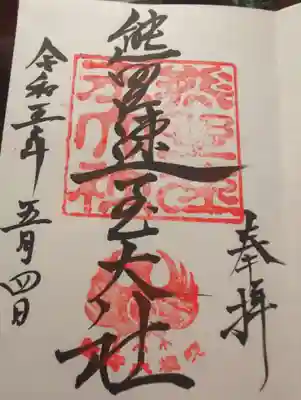 奉拝
熊野速玉大社
令和五年 五月四日